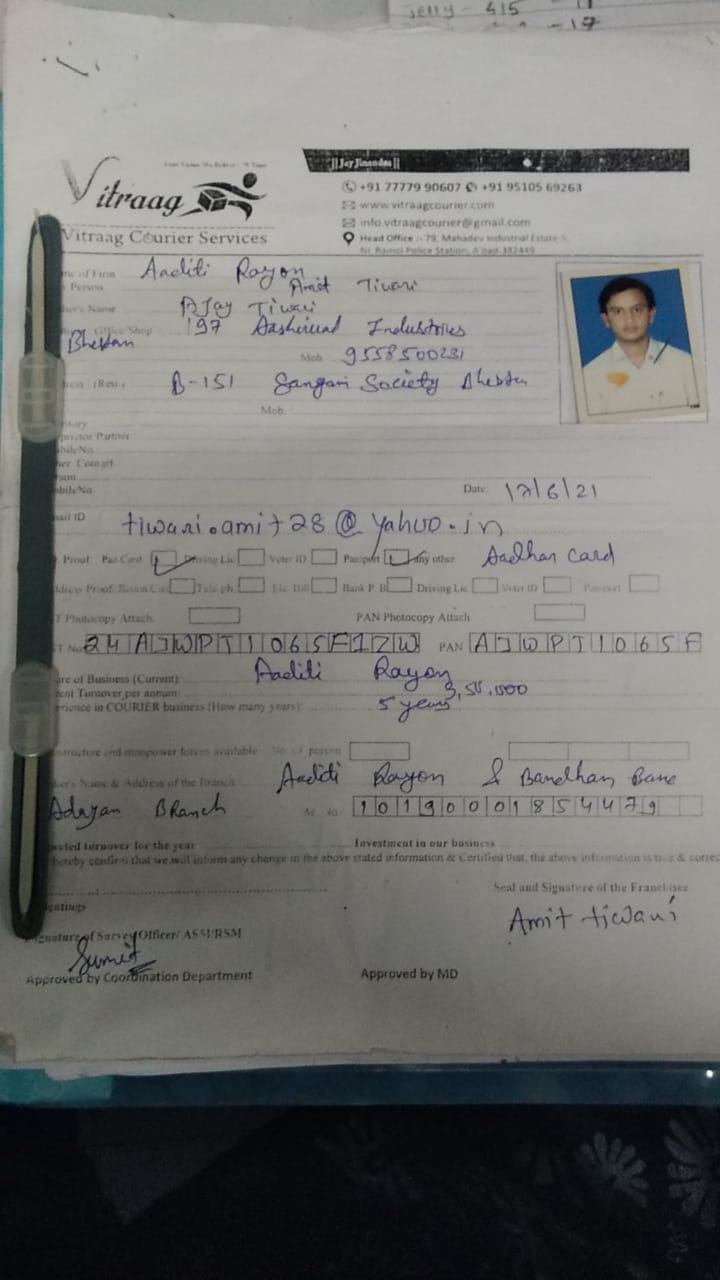 Jelly - 415
- 17
|| Jay Jinandra ||
Vitraag
Vitraag Courier Services
+91 77779 90607 +91 95105 69263
www.vitraagcourier.com
info.vitraagcourier@gmail.com
Head Office :- 79, Mahadev Industrial Estate-
Nr. Ramol Police Station, A'bad-382449
of Firm Aaditi Rayon
Person Amit Tiwari
er's Name AJay Tiwari
Office Shop 197 Aashirwad Industries
Bhestan
Mob 9558500231
(Resi.) B-151 Sangam Society Bhestan
Mob.
Partner
No.
Contact
No.
Date: 17/6/21
ail ID tiwari.amit28@yahoo.in
Proof: Pan Card Driving Lic Voter ID Passport any other Aadhar Card
Proof: Ration Card Tele ph. Ele. Bill Bank P. B Driving Lic Voter ID Passport
T Photocopy Attach. PAN Photocopy Attach
T No. 24AJWPT1065F1ZW PAN AJWPT1065F
ure of Business (Current): Aaditi Rayon
ent Turnover per annum: 3,55,000
erience in COURIER business (How many years): 5 years
structure and manpower forces available No. of person
ker's Name & Address of the Branch Aaditi Rayon & Bandhan Bank
Adajan BRanch Ac. No. 10190001854479
cted turnover for the year Investment in our business
hereby confirm that we will inform any change in the above stated information & Certified that, the above information is true & correc
Seal and Signature of the Franchisee
Amit tiwari
Signature of Survey Officer/ ASM/RSM
Sumit
Approved by Coordination Department Approved by MD